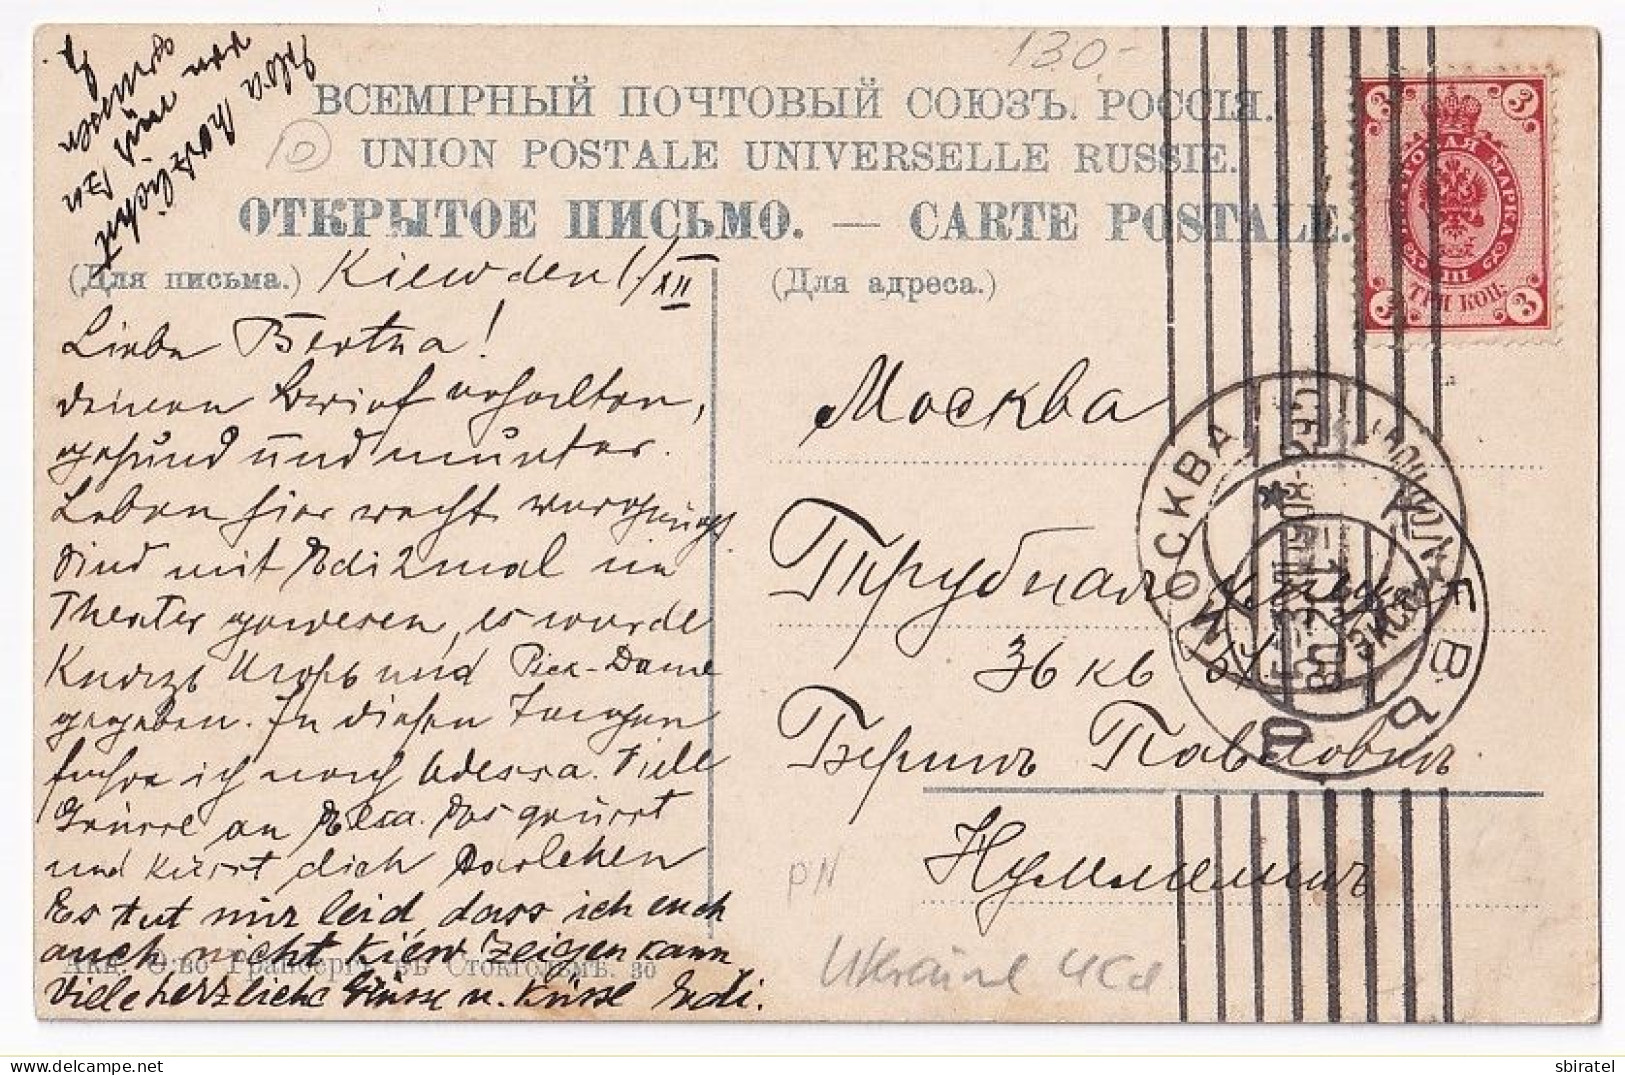 130.-
ВСЕМІРНЫЙ ПОЧТОВЫЙ СОЮЗЪ. РОССІЯ.
UNION POSTALE UNIVERSELLE RUSSIE.
ОТКРЫТОЕ ПИСЬМО. — CARTE POSTALE.
(Для письма.)
Kiew den 1/XII
Liebe Bertha!
deinen Brief erhalten,
gesund und munter.
Leben hier recht vergnügt
sind mit Edi 2 mal im
Theater gewesen, es wurde
Князь Игорь und Pick-Dame
gegeben. In diesen Tagen
fahre ich nach Odessa. Viele
Grüsse an das grüsst
und küsst dich Darlehen
Es tut mir leid, dass ich euch
auch nicht Kiew zeigen kann
Viele herzliche Grüsse u. Küsse Edi.
Акц. О-во Гранбергъ въ Стокгольмѣ. 30
(Для адреса.)
Москва
Трубная
36 кв
Павловнѣ
PN
Ukraine
3 3
ПОЧТОВАЯ МАРКА
III
ТРИ КОП.
3 3
МОСКВА
КІЕВЪ